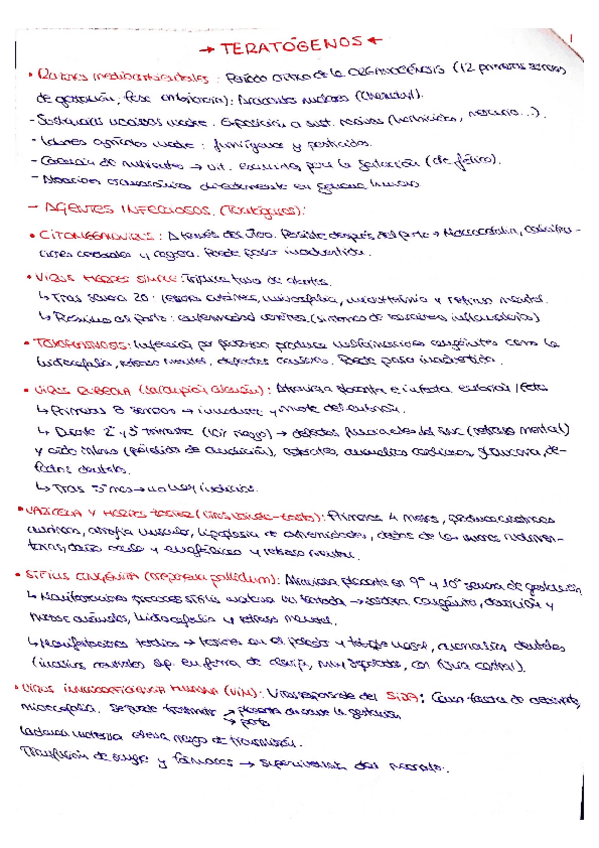 → TERATÓGENOS ←
• Razones medioambientales: Periodo crítico de la ORGANOGÉNESIS (12 primeras semanas
de gestación, fase embrionaria): Accidentes nucleares (Chernobyl).
- Sustancias nocivas madre. Exposición a sust. nocivas (herbicidas, mercurio...).
- Labores agrícolas madre: fumígenos y pesticidas.
- Carencia de nutrientes → vit. esenciales para la gestación (ác fólico).
- directamente en genoma humano
- AGENTES INFECCIOSOS. (Teratógenos):
• CITOMEGALOVIRUS: A través del Posible después del parto → Macrocefalia, calcifica-
ciones cerebrales y Puede pasar inadvertida.
• VIRUS HERPES SIMPLE: Triplica tasa de abortos.
↳ Tras semana 20: lesiones cutáneas, microcefalia, microftalmia y retraso mental.
↳ al parto: enfermedad (síntomas de inflamatorios)
• TOXOPLASMOSIS: Infección por produce malformaciones congénitas como la
hidrocefalia, retraso mental, defectos Puede pasar inadvertida.
• VIRUS RUBEOLA (Sarampión Alemán): Atraviesa placenta e infecta embrión/feto
↳ Primeras 8 semanas → y muerte del embrión.
↳ Durante 2º y 3º trimestre → defectos del SNC (retraso mental)
y oído interno (pérdida de audición), cataratas, anomalías cardiacas, glaucoma, de-
fectos dentales.
↳ Tras 5º mes → no hay
• VARICELA Y HERPES ZOSTER: Primeros 4 meses, produce cicatrices
cutáneas, atrofia muscular, hipoplasia de extremidades, dedos de las manos rudimen-
tarios, daño ocular y y retraso mental.
• SÍFILIS CONGÉNITA (treponema pallidum): Atraviesa placenta en 9ª y 10ª semana de gestación
↳ Manifestaciones precoces sífilis materna no tratada → sordera congénita,
hidrocefalia y retraso mental.
↳ Manifestaciones tardías → lesiones en el paladar y tabique nasal, anomalías dentales
(incisivos centrales sup. en forma de clavija, muy separados, con central).
• VIRUS INMUNODEFICIENCIA HUMANA (VIH): Virus responsable del SIDA: Causa
microcefalia. Se puede transmitir → placenta durante la gestación
→ parto
Lactancia materna eleva riesgo de transmisión.
Transfusión de sangre y fármacos → supervivencia del neonato.